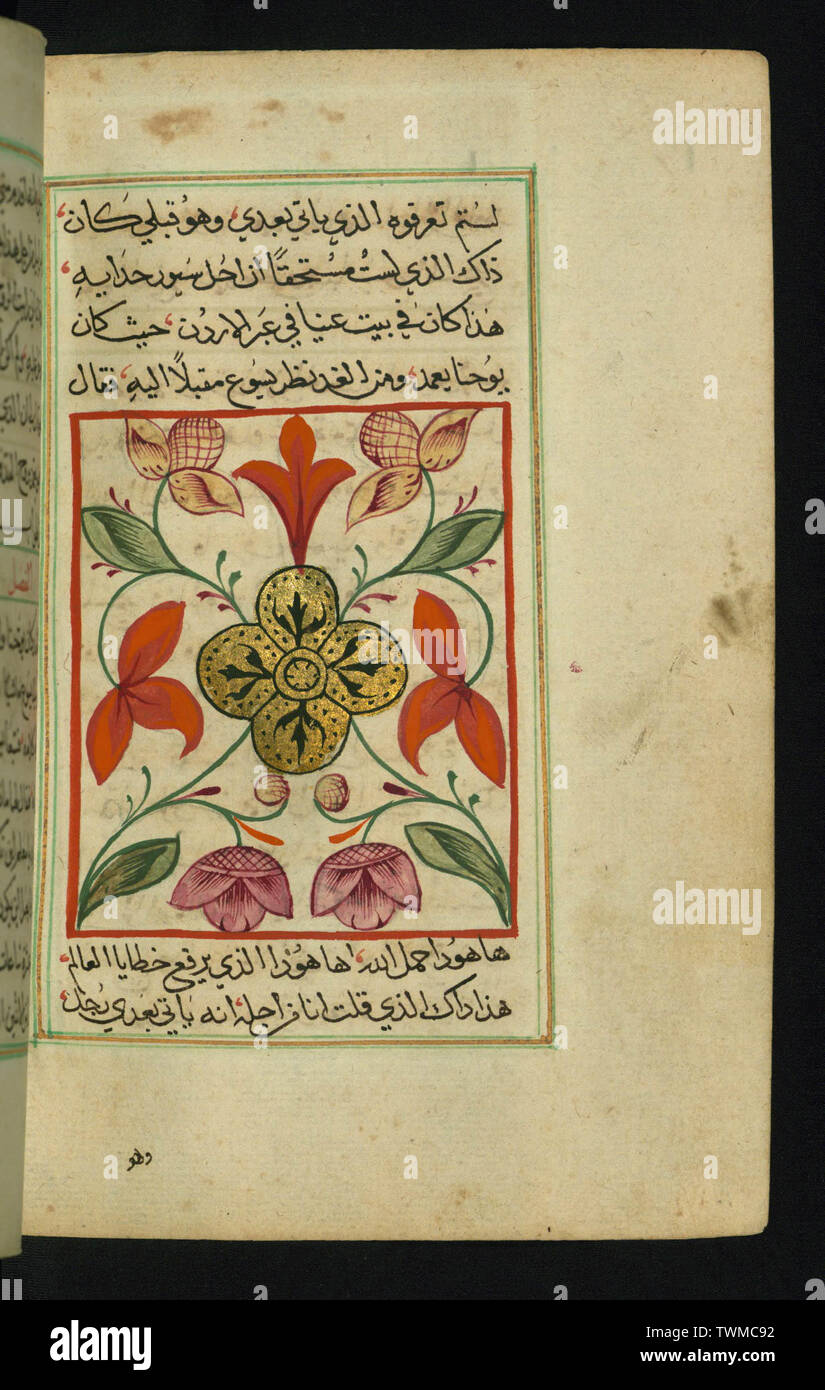 لستم تعرفوه الذي ياتي بعدي، وهو قبلي كان،
ذاك الذي لست مستحقاً ان احل سيور حدايه،
هذا كان في بيت عنيا في عبر الاردن، حيث كان
يوحنا يعمد، ومن الغد نظر يسوع مقبلاً اليه، فقال
هاهوذا حمل الله، هاهوذا الذي يرفع خطايا العالم،
هذا ذاك الذي قلت انا من اجله، انه ياتي بعدي رجل
وهو
alamy
Image ID: TWMC92
www.alamy.com